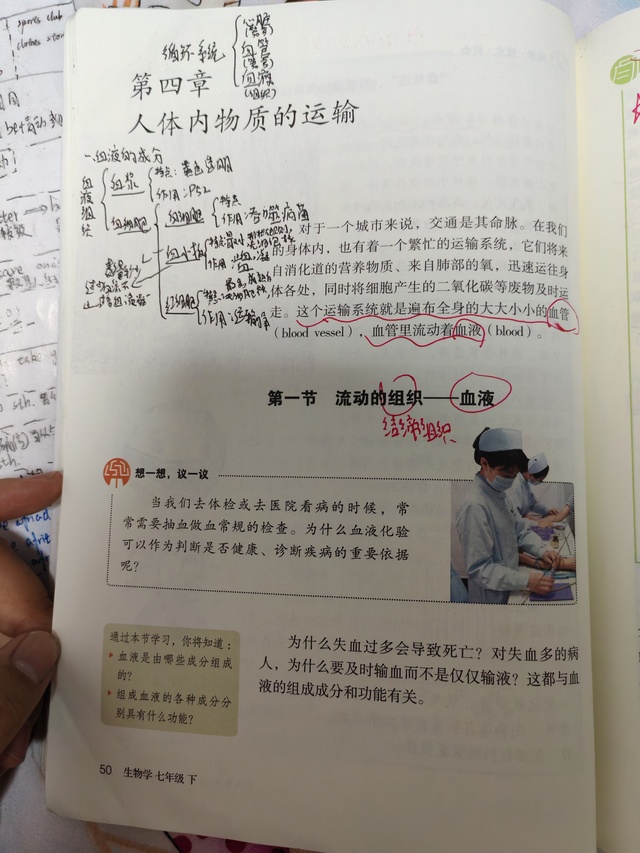 sports club
循环系统
血管
血液
(组织)
第四章
人体内物质的运输
一.血液的成分
血液组织
血浆
特点：黄色透明
作用：P52
血细胞
白细胞
特点
作用：吞噬病菌
血小板
红细胞
对于一个城市来说，交通是其命脉。在我们
的身体内，也有着一个繁忙的运输系统，它们将来
自消化道的营养物质、来自肺部的氧，迅速运往身
体各处，同时将细胞产生的二氧化碳等废物及时运
走。这个运输系统就是遍布全身的大大小小的血管
（blood vessel），血管里流动着血液（blood）。
第一节 流动的组织——血液
结缔组织
想一想，议一议
当我们去体检或去医院看病的时候，常
常需要抽血做血常规的检查。为什么血液化验
可以作为判断是否健康、诊断疾病的重要依据
呢？
通过本节学习，你将知道：
血液是由哪些成分组成
的？
组成血液的各种成分分
别具有什么功能？
为什么失血过多会导致死亡？对失血多的病
人，为什么要及时输血而不是仅仅输液？这都与血
液的组成成分和功能有关。
50 生物学 七年级 下